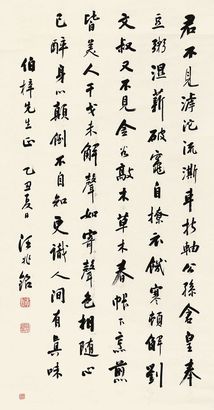 君不見滹沱流澌車折軸公孫倉皇奉
豆粥濕薪破竈自燎衣飢寒頓解劉
文叔又不見金谷敲冰草木春帳下烹煎
皆美人干戈未解聲如寄聲色相隨心
已醉身心顛倒不自知更識人間有真味
伯梓先生正 乙丑夏日 汪兆銘